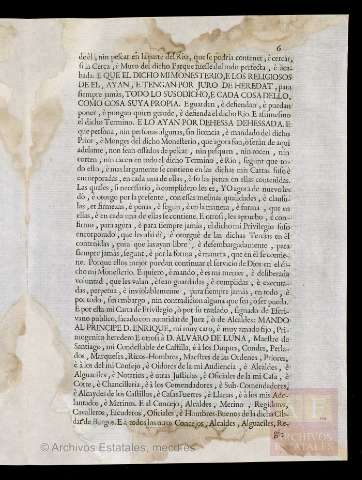 6
de èl, nin pescar en la parte del Rio, que se podria contener, è cercar,
si la Cerca, è Muro del dicho Parque fuesse del todo perfecta, è aca-
bada. E QUE EL DICHO MI MONESTERIO, E LOS RELIGIOSOS
DE EL, AYAN, E TENGAN POR JURO DE HEREDAT, para
siempre jamàs, TODO LO SUSODICHO, E CADA COSA DELLO,
COMO COSA SUYA PROPIA. E guarden, è defiendan, è puedan
poner, è pongan quien guarde, è defienda el dicho Rio. E assimesmo
el dicho Termino. E LO AYAN POR DEHESSA DEHESSADA. E
que persona, nin personas algunas, sin licencia, è mandado del dicho
Prior, è Monges del dicho Monesterio, que agora son, ò seràn de aqui
adelante, non sean ossados de pescar, nin pesquen, nin rocen, nin
corten, nin cacen en todo el dicho Termino, è Rio, segunt que to-
do esto, è mas largamente se contiene en las dichas mis Cartas suso
incorporadas, è en cada una de ellas, è so las penas en ellas contenidas.
Las quales, si necessario, è complidero les es, YO agora de nuevo les
dò, è otorgo por la presente, con essas mesmas qualidades, è clausu-
las, et firmezas, è penas, è segunt, è en la manera, è forma, que en
ellas, è en cada una de ellas se contiene. E otrosi, les apruebo, è con-
firmo, para agora, è para siempre jamàs, el dicho mi Privilegio suso
encorporado, que les yo dì, è otorguè de las dichas Tercias en èl
contenidas, para que las ayan libre, è desembargadamente, para
siempre jamàs, segunt, è por la forma, è manera, que en èl se contie-
ne. Porque ellos mejor puedan continuar el servicio de Dios en el di-
cho mi Monesterio. E quiero, è mando, è es mi merced, è deliberada
voluntad, que les valan, è sean guardados, è complidas, è executa-
das, perpetua, è inviolablemente, para siempre jamàs, en todo, è
por todo, sin embargo, nin contradicion alguna que sea, o ser pueda.
E por esta mi Carta de Privilegio, ò por su traslado, signado de Escri-
vano publico, sacado con autoridad de Juez, ò de Alcalde: MANDO
AL PRINCIPE D. ENRIQUE, mi muy caro, è muy amado fijo, Pri-
mogenito heredero. E otrosi à D. ALVARO DE LUNA, Maestre de
Santiago, mi Condestable de Castilla, è à los Duques, Condes, Perla-
dos, Marqueses, Ricos-Hombres, Maestres de las Ordenes, Priores,
è à los del mi Consejo, è Oidores de la mi Audiencia, è Alcaldes, è
Alguaciles, è Notarios, è otras Justicias, è Oficiales de la mi Casa, è
Corte, è Chancilleria, è à los Comendadores, è Sub-Comendadores,
è Alcaydes de los Castillos, è Casas Fuertes, è Llanas, è à los mis Ade-
lantados, è Merinos. E al Concejo, Alcaldes, Merino, Regidores,
Cavalleros, Escuderos, Oficiales, è Hombres-Buenos de la dicha Cib-
dat de Burgos. E à todos los otros Concejos, Alcaldes, Alguaciles, Re-
gi-
© Archivos Estatales, mecd.es
ARCHIVOS
ESTATALES